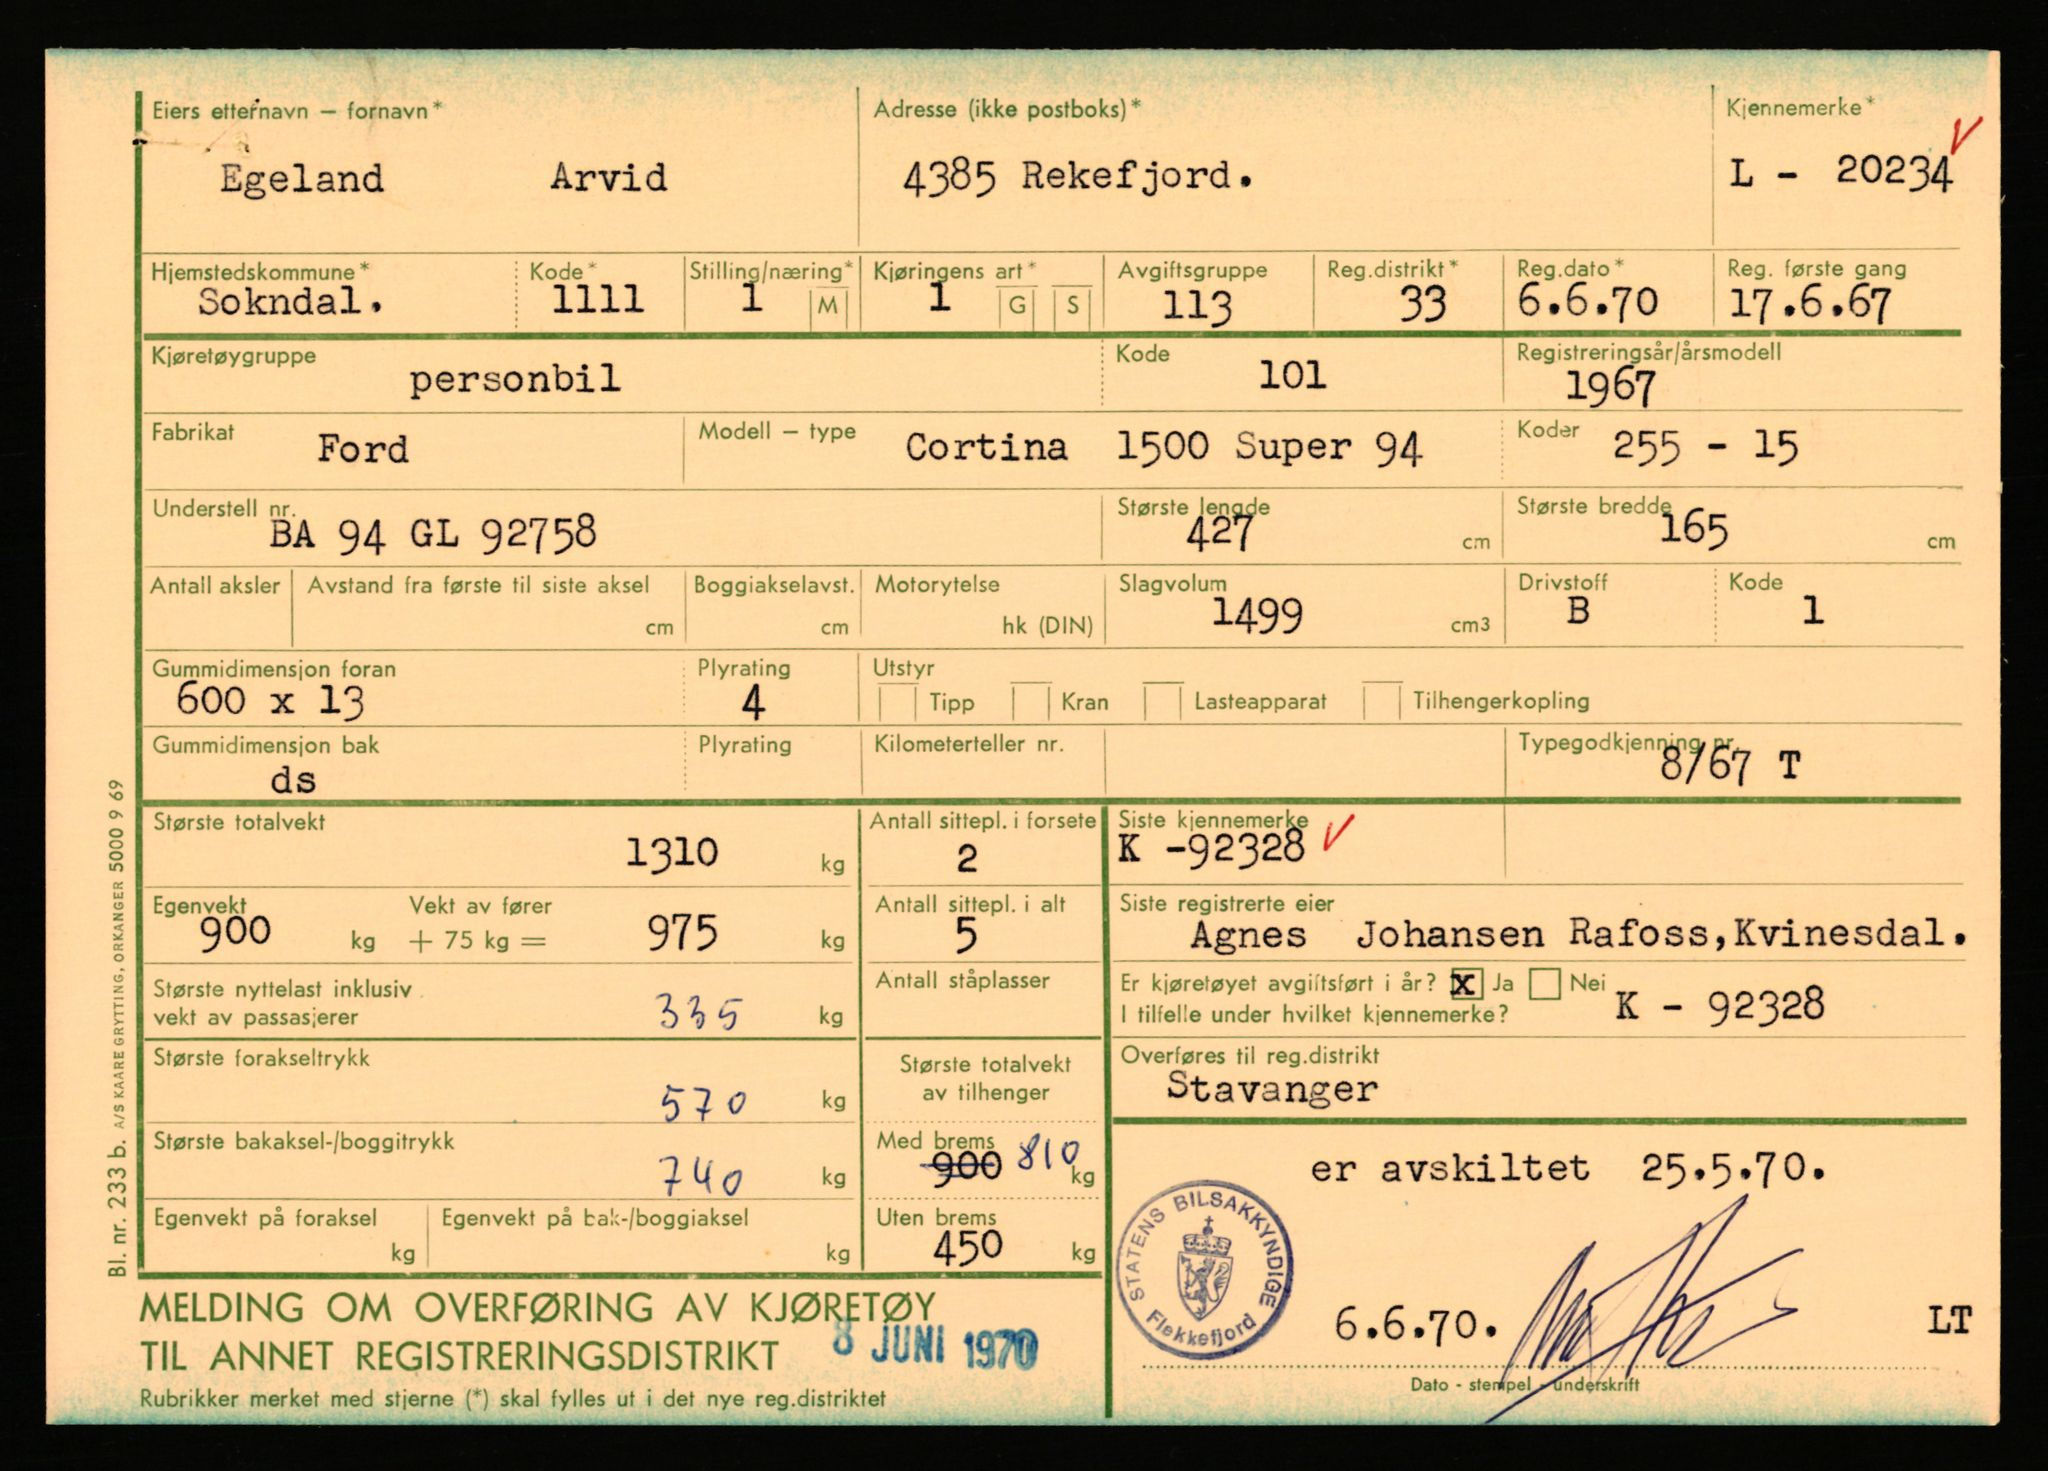 Eiers etternavn – fornavn* Adresse (ikke postboks)* Kjennemerke*
Egeland Arvid 4385 Rekefjord. L - 20234
Hjemstedskommune* Kode* Stilling/næring* Kjøringens art* Avgiftsgruppe Reg.distrikt* Reg.dato* Reg. første gang
Sokndal. 1111 1 M 1 G S 113 33 6.6.70 17.6.67
Kjøretøygruppe Kode Registreringsår/årsmodell
personbil 101 1967
Fabrikat Modell – type Koder
Ford Cortina 1500 Super 94 255 - 15
Understell nr. Største lengde Største bredde
BA 94 GL 92758 427 cm 165 cm
Antall aksler Avstand fra første til siste aksel Boggiakselavst. Motorytelse Slagvolum Drivstoff Kode
cm cm hk (DIN) 1499 cm3 B 1
Gummidimensjon foran Plyrating Utstyr
600 x 13 4 Tipp Kran Lasteapparat Tilhengerkopling
Gummidimensjon bak Plyrating Kilometerteller nr. Typegodkjenning nr.
ds 8/67 T
Største totalvekt Antall sittepl. i forsete Siste kjennemerke
1310 kg 2 K -92328
Egenvekt Vekt av fører Antall sittepl. i alt Siste registrerte eier
900 kg + 75 kg = 975 kg 5 Agnes Johansen Rafoss, Kvinesdal.
Største nyttelast inklusiv Antall ståplasser Er kjøretøyet avgiftsført i år? x Ja Nei
vekt av passasjerer 335 kg I tilfelle under hvilket kjennemerke? K - 92328
Største forakseltrykk Største totalvekt Overføres til reg.distrikt
570 kg av tilhenger Stavanger
Største bakaksel-/boggitrykk Med brems
740 kg 900 810 kg er avskiltet 25.5.70.
Egenvekt på foraksel Egenvekt på bak-/boggiaksel Uten brems
kg kg 450 kg
STATENS BILSAKKYNDIGE
Flekkefjord
MELDING OM OVERFØRING AV KJØRETØY
6.6.70. LT
TIL ANNET REGISTRERINGSDISTRIKT 8 JUNI 1970
Dato - stempel - underskrift
Rubrikker merket med stjerne (*) skal fylles ut i det nye reg.distriktet
Bl. nr. 233 b. A/S KAARE GRYTTING, ORKANGER 5000 9 69